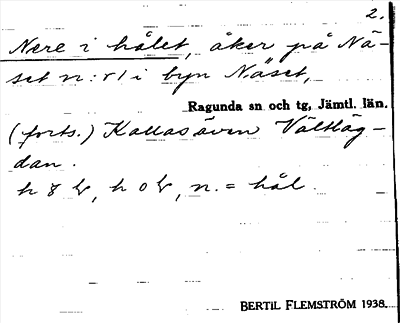 2.
Nere i hålet, åker på Nä-
set n:r 1 i byn Näset,
Ragunda sn och tg, Jämtl. län.
(forts.) Kallas även Vältläg-
dan.
h 8 tr, h 0 tr, n. = hål.
BERTIL FLEMSTRÖM 1938.